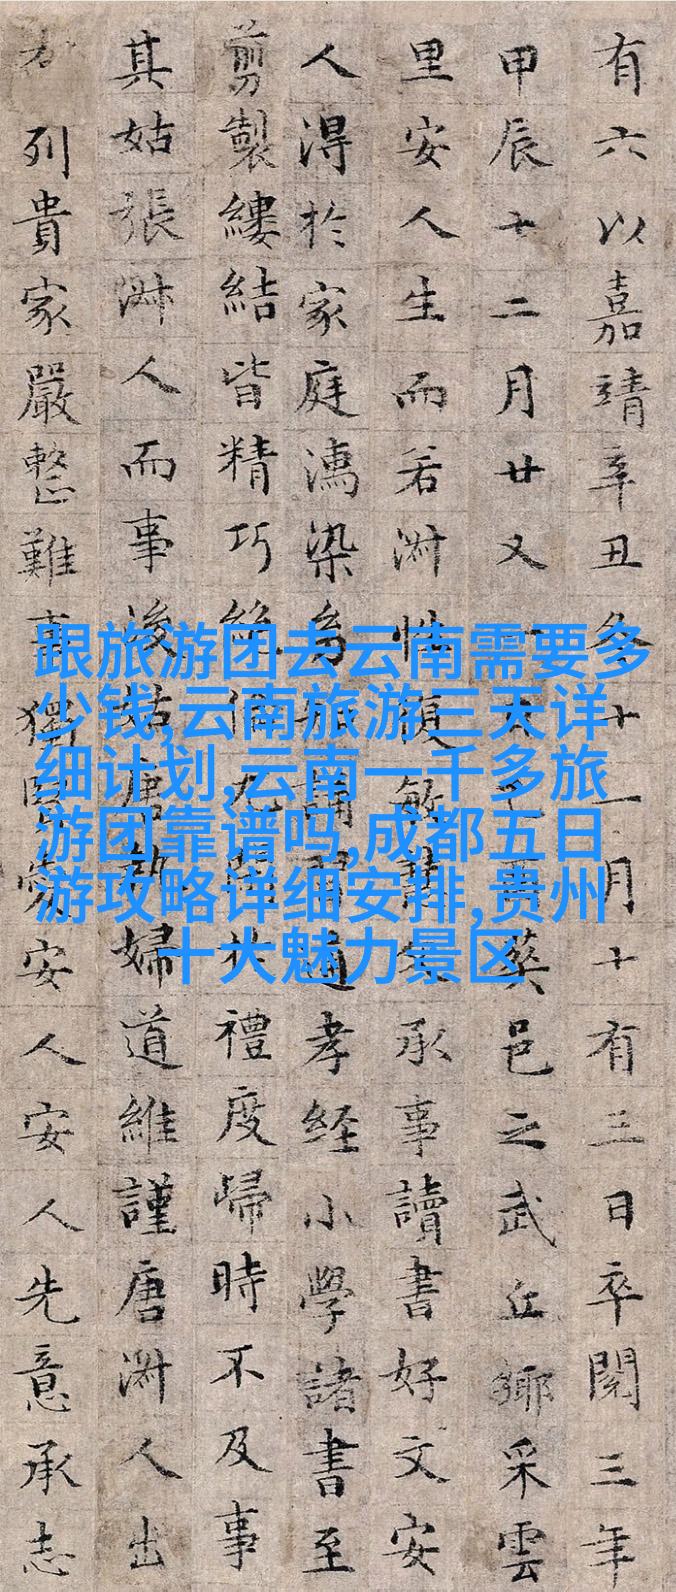 有六以嘉靖辛丑冬十一月十有三日卒閱三年
甲辰十二月廿又
葵邑之武丘鄉采雲
里安人生而若淑性
敏
承事讀書好文安
人淂於家庭濡染
誦
孝經小學諸書至
剪製縷結皆精巧絲
禮度歸時不及事
其姑張淑人而事後姑唐
婦道維謹唐淑人出
列貴家嚴整難事獨
安人安人先意承志
跟旅游团去云南需要多
少钱,云南旅游三天详
细计划,云南一千多旅
游团靠谱吗,成都五日
游攻略详细安排,贵州
十大魅力景区